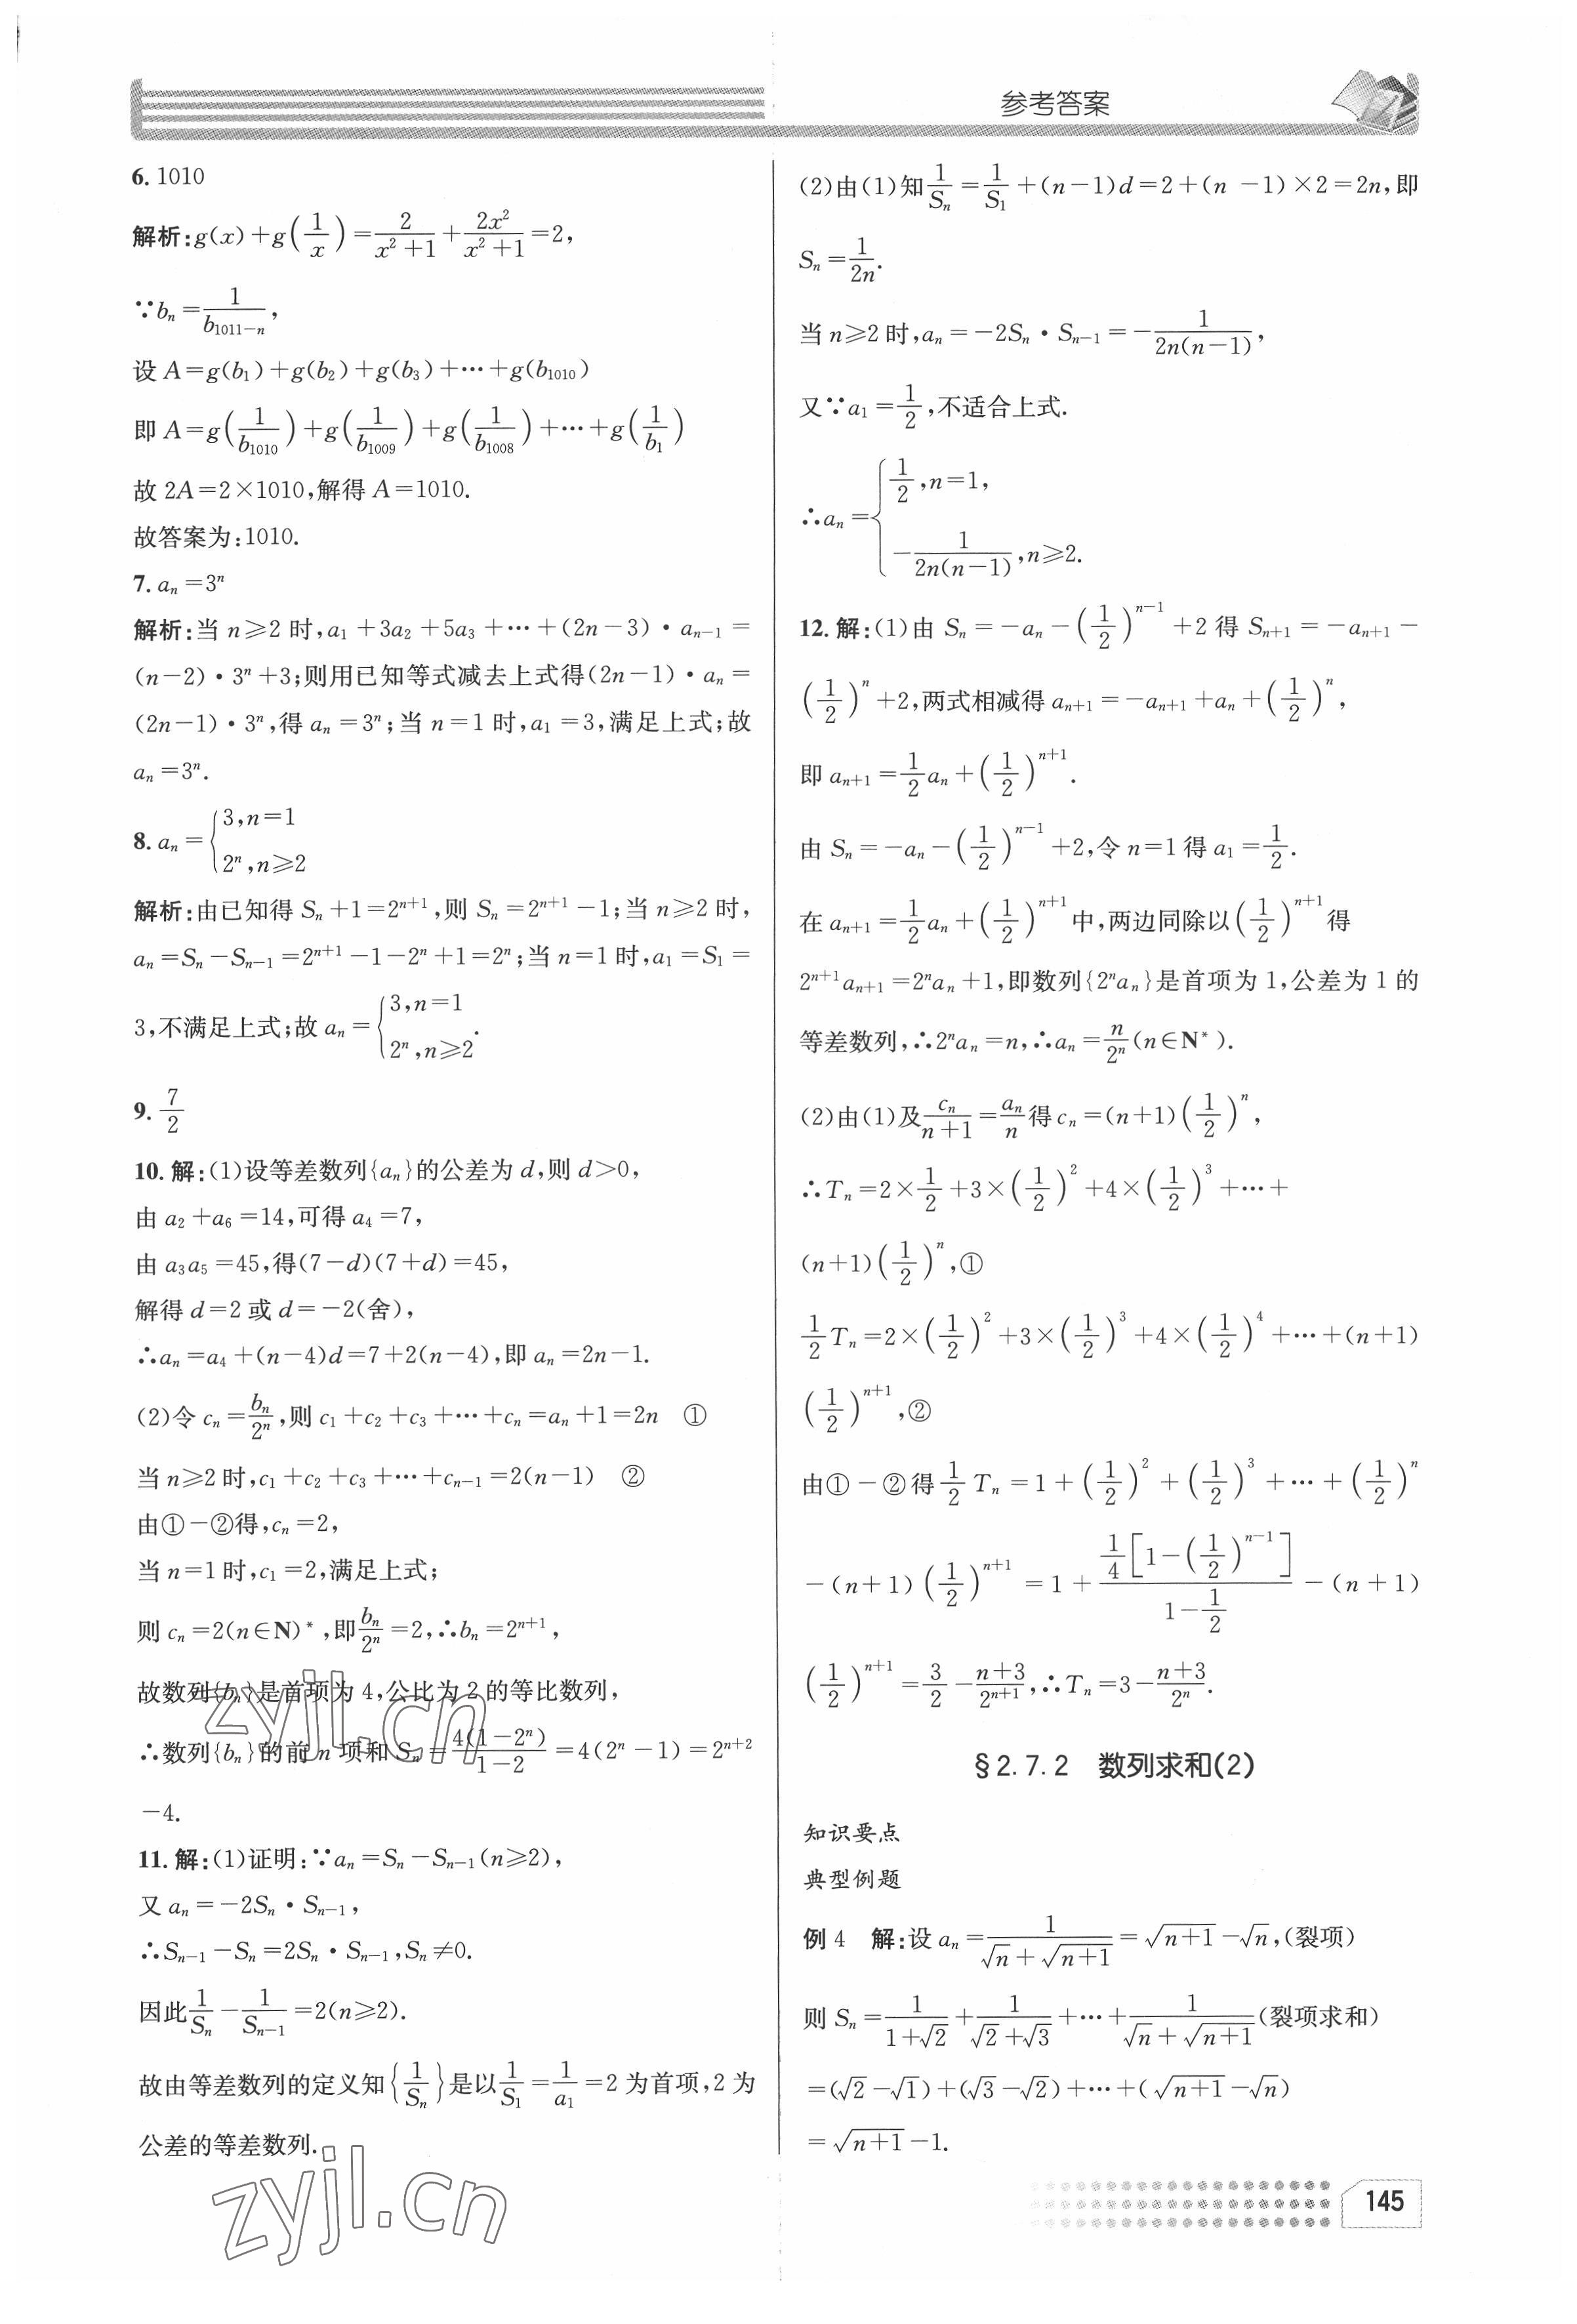 参考答案
6. 1010
解析:g(x)+g(1/x)=2/(x²+1)+2x²/(x²+1)=2,
∵bₙ=1/b₁₀₁₁₋ₙ,
设 A=g(b₁)+g(b₂)+g(b₃)+…+g(b₁₀₁₀)
即 A=g(1/b₁₀₁₀)+g(1/b₁₀₀₉)+g(1/b₁₀₀₈)+…+g(1/b₁)
故 2A=2×1010,解得 A=1010.
故答案为:1010.
7. aₙ=3ⁿ
解析:当 n≥2 时,a₁+3a₂+5a₃+…+(2n-3)·aₙ₋₁=
(n-2)·3ⁿ+3;则用已知等式减去上式得(2n-1)·aₙ=
(2n-1)·3ⁿ,得 aₙ=3ⁿ;当 n=1 时,a₁=3,满足上式;故
aₙ=3ⁿ.
8. aₙ={3,n=1
2ⁿ,n≥2
解析:由已知得 Sₙ+1=2ⁿ⁺¹,则 Sₙ=2ⁿ⁺¹-1;当 n≥2 时,
aₙ=Sₙ-Sₙ₋₁=2ⁿ⁺¹-1-2ⁿ+1=2ⁿ;当 n=1 时,a₁=S₁=
3,不满足上式;故 aₙ={3,n=1
2ⁿ,n≥2.
9. 7/2
10. 解:(1)设等差数列{aₙ}的公差为 d,则 d>0,
由 a₂+a₆=14,可得 a₄=7,
由 a₃a₅=45,得(7-d)(7+d)=45,
解得 d=2 或 d=-2(舍),
∴aₙ=a₄+(n-4)d=7+2(n-4),即 aₙ=2n-1.
(2)令 cₙ=bₙ/2ⁿ,则 c₁+c₂+c₃+…+cₙ=aₙ+1=2n ①
当 n≥2 时,c₁+c₂+c₃+…+cₙ₋₁=2(n-1) ②
由①-②得,cₙ=2,
当 n=1 时,c₁=2,满足上式;
则 cₙ=2(n∈N)*,即bₙ/2ⁿ=2,∴bₙ=2ⁿ⁺¹,
故数列{bₙ}是首项为 4,公比为 2 的等比数列,
∴数列{bₙ}的前 n 项和 Sₙ=4(1-2ⁿ)/(1-2)=4(2ⁿ-1)=2ⁿ⁺²
-4.
11. 解:(1)证明:∵aₙ=Sₙ-Sₙ₋₁(n≥2),
又 aₙ=-2Sₙ·Sₙ₋₁,
∴Sₙ₋₁-Sₙ=2Sₙ·Sₙ₋₁,Sₙ≠0.
因此1/Sₙ-1/Sₙ₋₁=2(n≥2).
故由等差数列的定义知{1/Sₙ}是以1/S₁=1/a₁=2 为首项,2 为
公差的等差数列.
(2)由(1)知1/Sₙ=1/S₁+(n-1)d=2+(n-1)×2=2n,即
Sₙ=1/2n.
当 n≥2 时,aₙ=-2Sₙ·Sₙ₋₁=-1/(2n(n-1)),
又∵a₁=1/2,不适合上式.
∴aₙ={1/2,n=1,
-1/(2n(n-1)),n≥2.
12. 解:(1)由 Sₙ=-aₙ-(1/2)ⁿ⁻¹+2 得 Sₙ₊₁=-aₙ₊₁-
(1/2)ⁿ+2,两式相减得 aₙ₊₁=-aₙ₊₁+aₙ+(1/2)ⁿ,
即 aₙ₊₁=1/2aₙ+(1/2)ⁿ⁺¹.
由 Sₙ=-aₙ-(1/2)ⁿ⁻¹+2,令 n=1 得 a₁=1/2.
在 aₙ₊₁=1/2aₙ+(1/2)ⁿ⁺¹中,两边同除以(1/2)ⁿ⁺¹得
2ⁿ⁺¹aₙ₊₁=2ⁿaₙ+1,即数列{2ⁿaₙ}是首项为 1,公差为 1 的
等差数列,∴2ⁿaₙ=n,∴aₙ=n/2ⁿ(n∈N*).
(2)由(1)及cₙ/(n+1)=aₙ/n得 cₙ=(n+1)(1/2)ⁿ,
∴Tₙ=2×1/2+3×(1/2)²+4×(1/2)³+…+
(n+1)(1/2)ⁿ,①
1/2Tₙ=2×(1/2)²+3×(1/2)³+4×(1/2)⁴+…+(n+1)
(1/2)ⁿ⁺¹,②
由①-②得1/2Tₙ=1+(1/2)²+(1/2)³+…+(1/2)ⁿ
-(n+1)(1/2)ⁿ⁺¹=1+1/4[1-(1/2)ⁿ⁻¹]/(1-1/2)-(n+1)
(1/2)ⁿ⁺¹=3/2-(n+3)/2ⁿ⁺¹,∴Tₙ=3-(n+3)/2ⁿ.
§2.7.2 数列求和(2)
知识要点
典型例题
例 4 解:设 aₙ=1/(√n+√(n+1))=√(n+1)-√n,(裂项)
则 Sₙ=1/(1+√2)+1/(√2+√3)+…+1/(√n+√(n+1))(裂项求和)
=(√2-√1)+(√3-√2)+…+(√(n+1)-√n)
=√(n+1)-1.
zyjl.cn
zyjl.cn
145